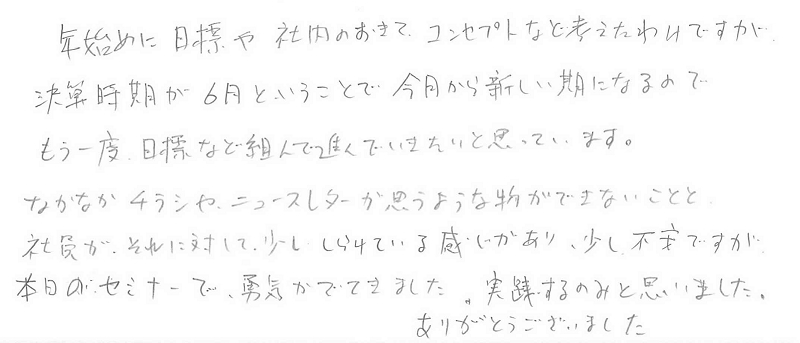 年始めに目標や社内のおきて、コンセプトなど考えたわけですが、
決算時期が6月ということで今月から新しい期になるので
もう一度、目標など組んで進んでいきたいと思っています。
なかなかチラシや、ニュースレターが思うような物ができないことと、
社員が、それに対して、少し、しらけている感じがあり、少し不安ですが、
本日のセミナーで、勇気がでてきました。実践するのみと思いました。
ありがとうございました